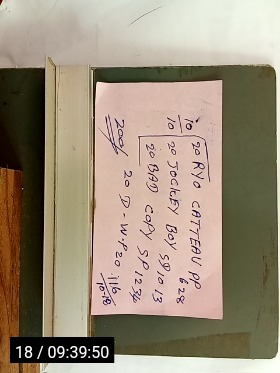 10
20 RYO CATTEAU PP 628
10 20 JOCKEY BOY SP 1013
20 BAD COPY SP 12
20 D - W.P20 116
200
10-18
18 / 09:39:50